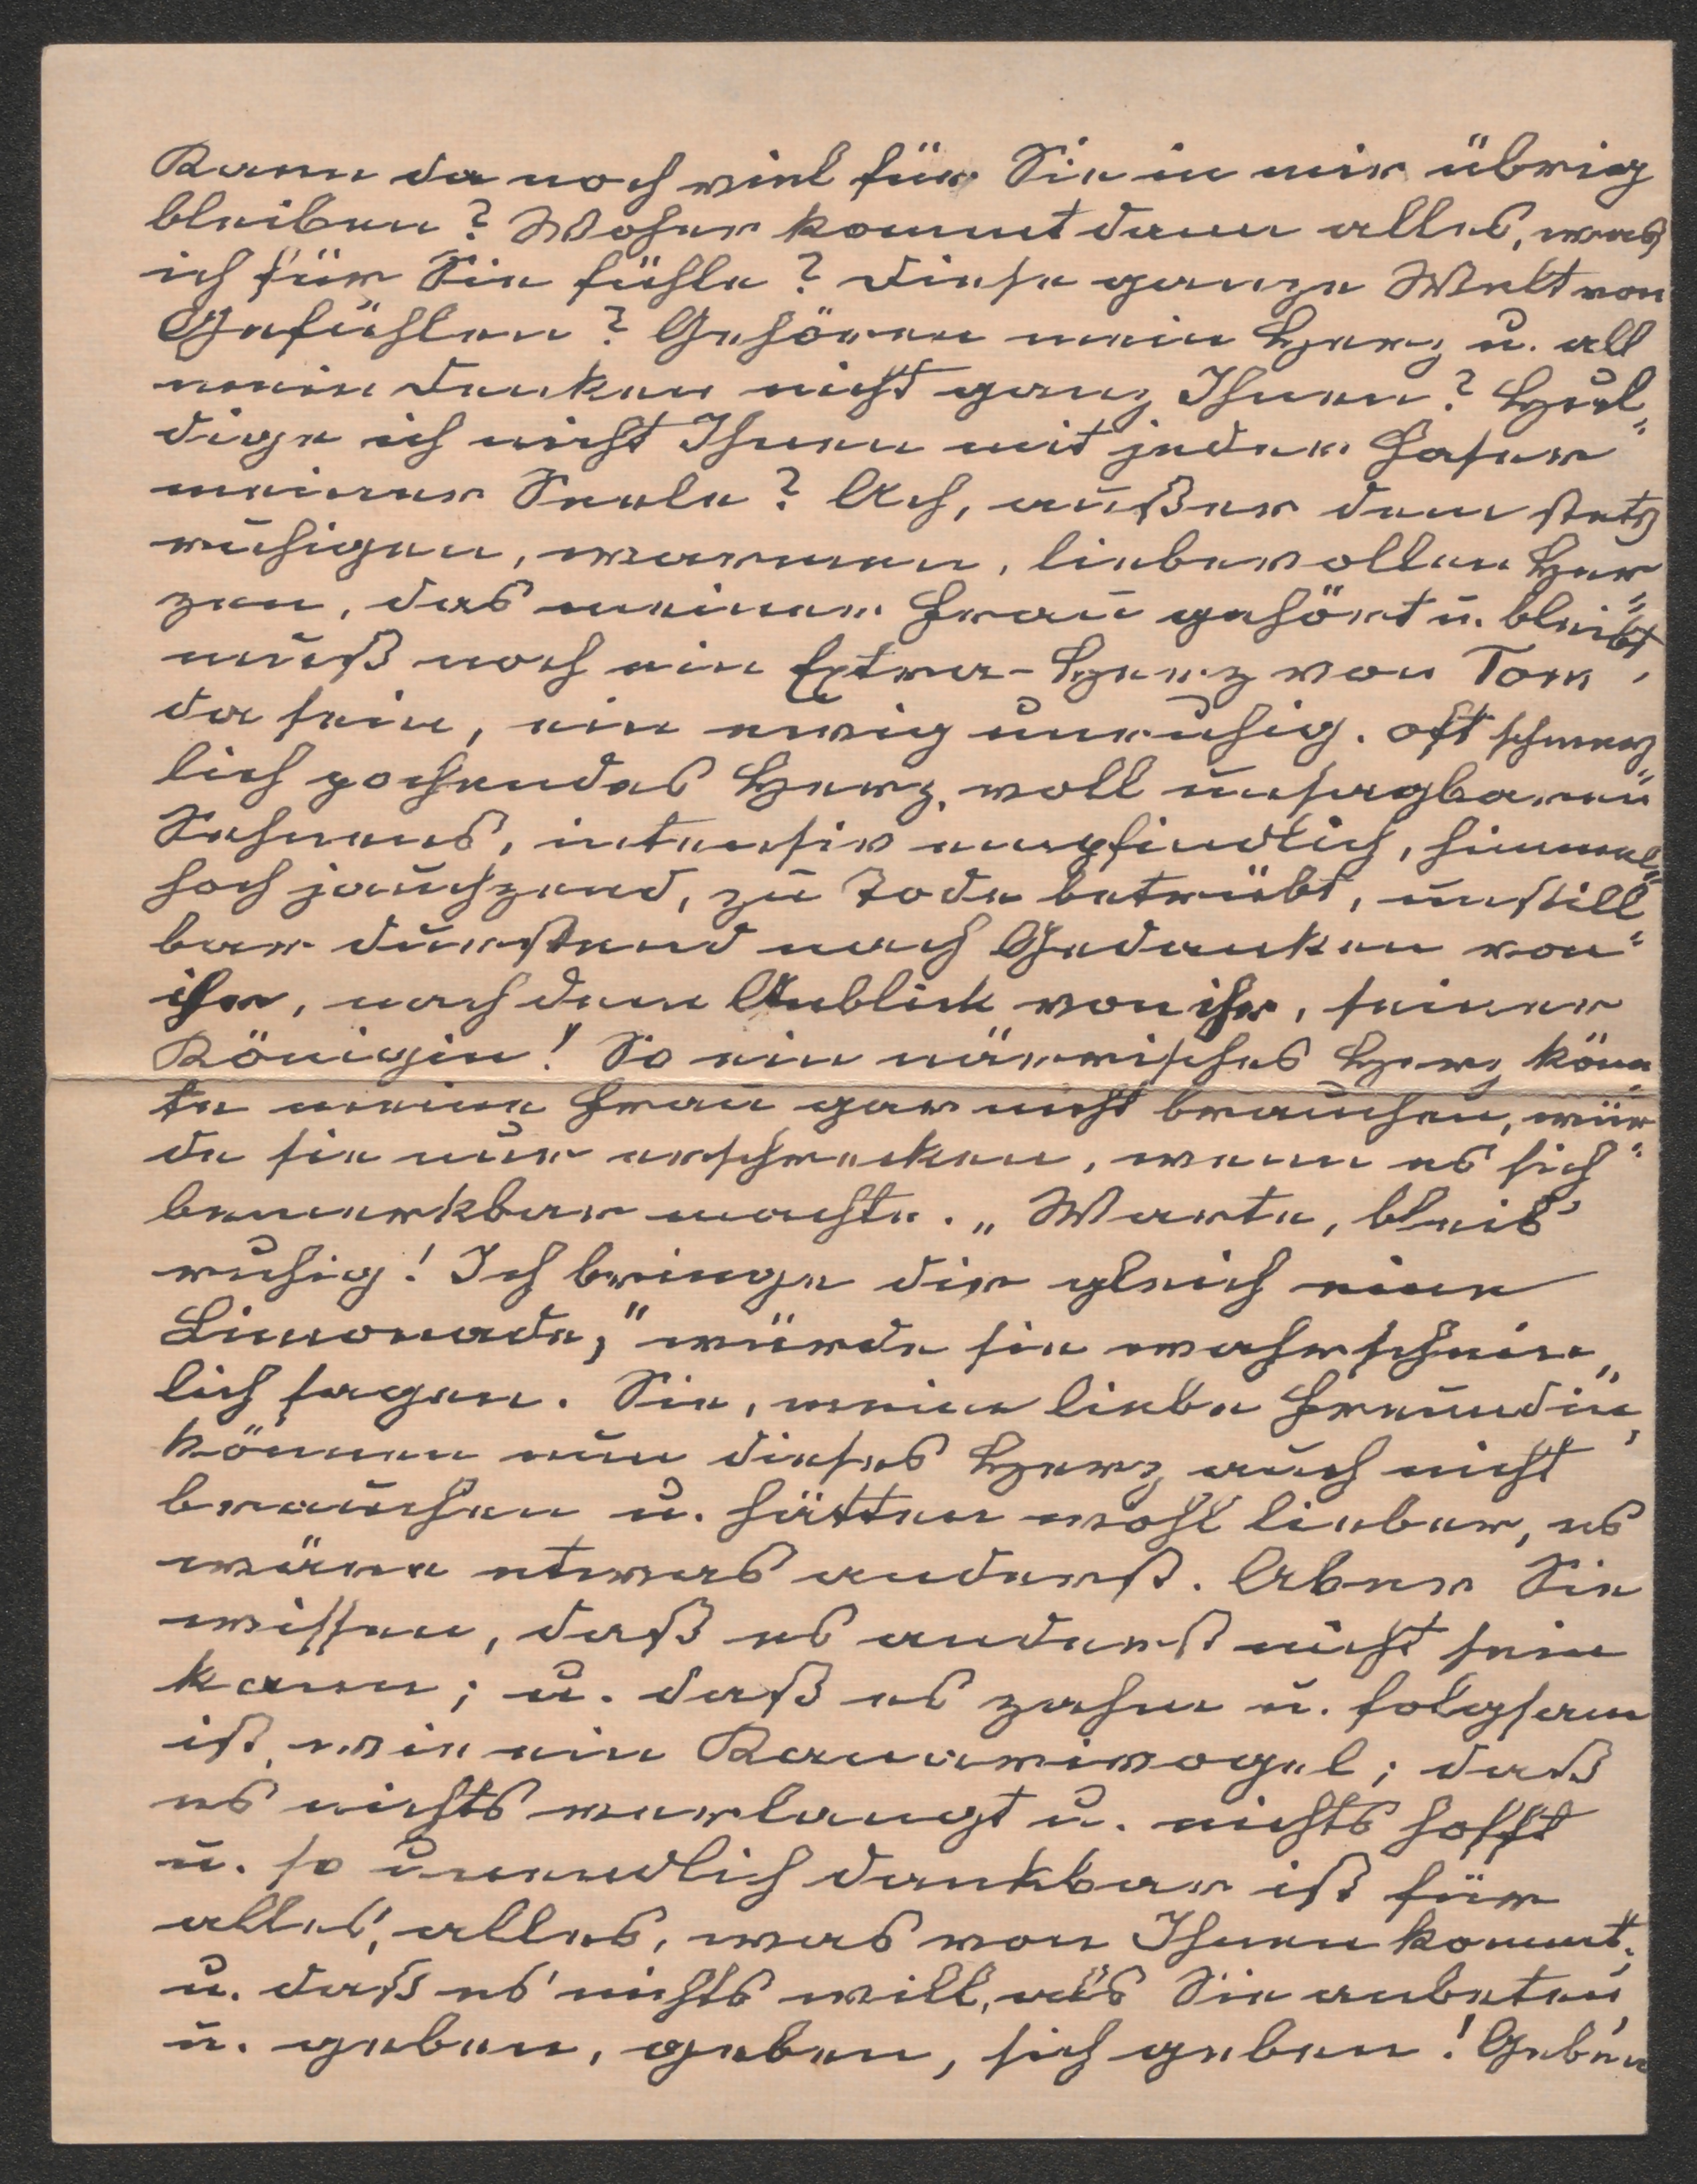 Kann da noch viel für Sie in mir übrig
bleiben? Woher kommt dann alles, was
ich für Sie fühle? Diese ganze Welt von
Gefühlen? Gehören mein Herz u. all
mein Denken nicht ganz Ihnen? Hul-
dige ich nicht Ihnen mit jeder Faser
meiner Seele? Ach, außer dem stets
ruhigen, warmen, liebevollen Her-
zen, das meiner Frau gehört u. bleibt,
muß noch ein Extra-Herz von Tom
da sein, ein ewig unruhig. oft schmerz-
lich pochendes Herz, voll unsagbaren
Sehnens, intensiv empfindlich, himmel-
hoch jauchzend, zu Tode betrübt, unstill-
bar dürstend nach Gedanken von
ihr, nach dem Anblick von ihr, seiner
Königin! So ein närrisches Herz könn-
te meine Frau gar nicht brauchen, wür-
de sie nur erschrecken, wenn es sich
bemerkbar machte. „Warte, bleib'
ruhig! Ich bringe dir gleich eine
Limonade," würde sie wahrschein-
lich sagen. Sie, meine liebe Freundin,
können nun dieses Herz auch nicht
brauchen u. hätten wohl lieber, es
wäre etwas anderst. Aber Sie
wissen, daß es anderst nicht sein
kann; u. daß es zahm u. folgsam
ist, wie ein Kanarivogel; daß
es nichts verlangt u. nichts hofft
u. so unendlich dankbar ist für
alles, alles, was von Ihnen kommt;
u. daß es nichts will, als Sie anbeten
u. geben, geben, sich geben! Geben